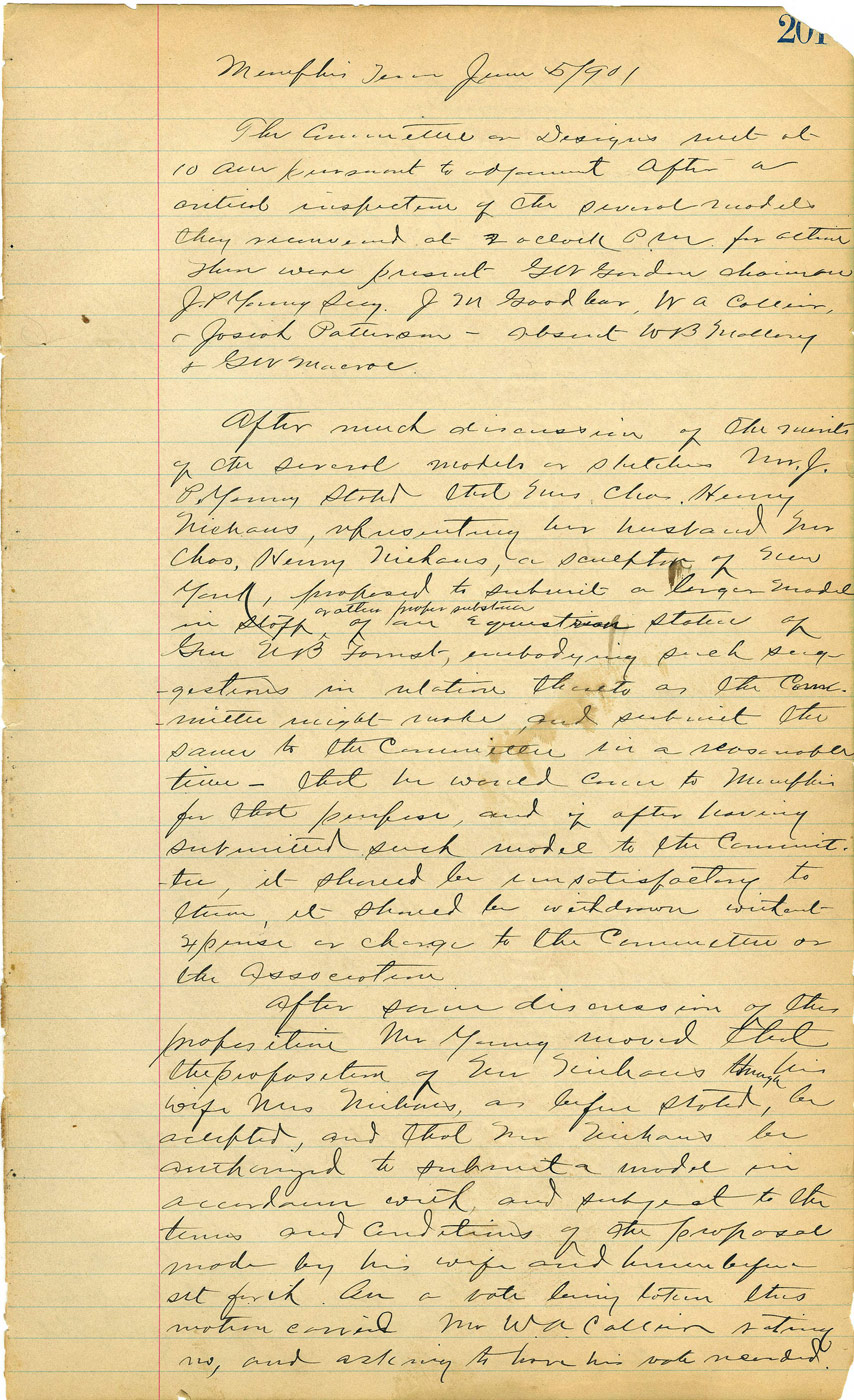 201
Memphis Tenn June 5/901
The Committee on Designs met at
10 am pursuant to adjournment After a
critical inspection of the several models
they reconvened at 2 oclock P.M. for action
There were present GW Gordon chairman
J.P. Young Secy. J M Goodbar, W A Collier,
& Josiah Patterson - absent W B Mallory
& GW Macrae.
After much discussion of the merits
of the several models or sketches Mr. J.
P. Young stated that Mrs. Chas. Henry
Niehaus, representing her husband Mr
Chas. Henry Niehaus, a sculptor of New
York, proposed to submit a larger model
or other proper substance
in staff, of an Equestrian statue of
Gen N B Forrest, embodying such sug-
-gestions in relation thereto as the Com-
-mittee might make, and submit the
same to the Committee in a reasonable
time - that he would come to Memphis
for that purpose, and if after having
submitted such model to the Commit-
-tee, it should be unsatisfactory to
them, it should be withdrawn without
expense or charge to the Committee or
the Association
After some discussion of this
proposition Mr Young moved that
the proposition of Mr Niehaus through his
wife Mrs Niehaus, as before stated, be
accepted, and that Mr Niehaus be
authorized to submit a model in
accordance with, and subject to the
terms and conditions of the proposal
made by his wife and hereinbefore
set forth. On a vote being taken this
motion carried Mr W.A. Collier voting
no, and asking to have his vote recorded.